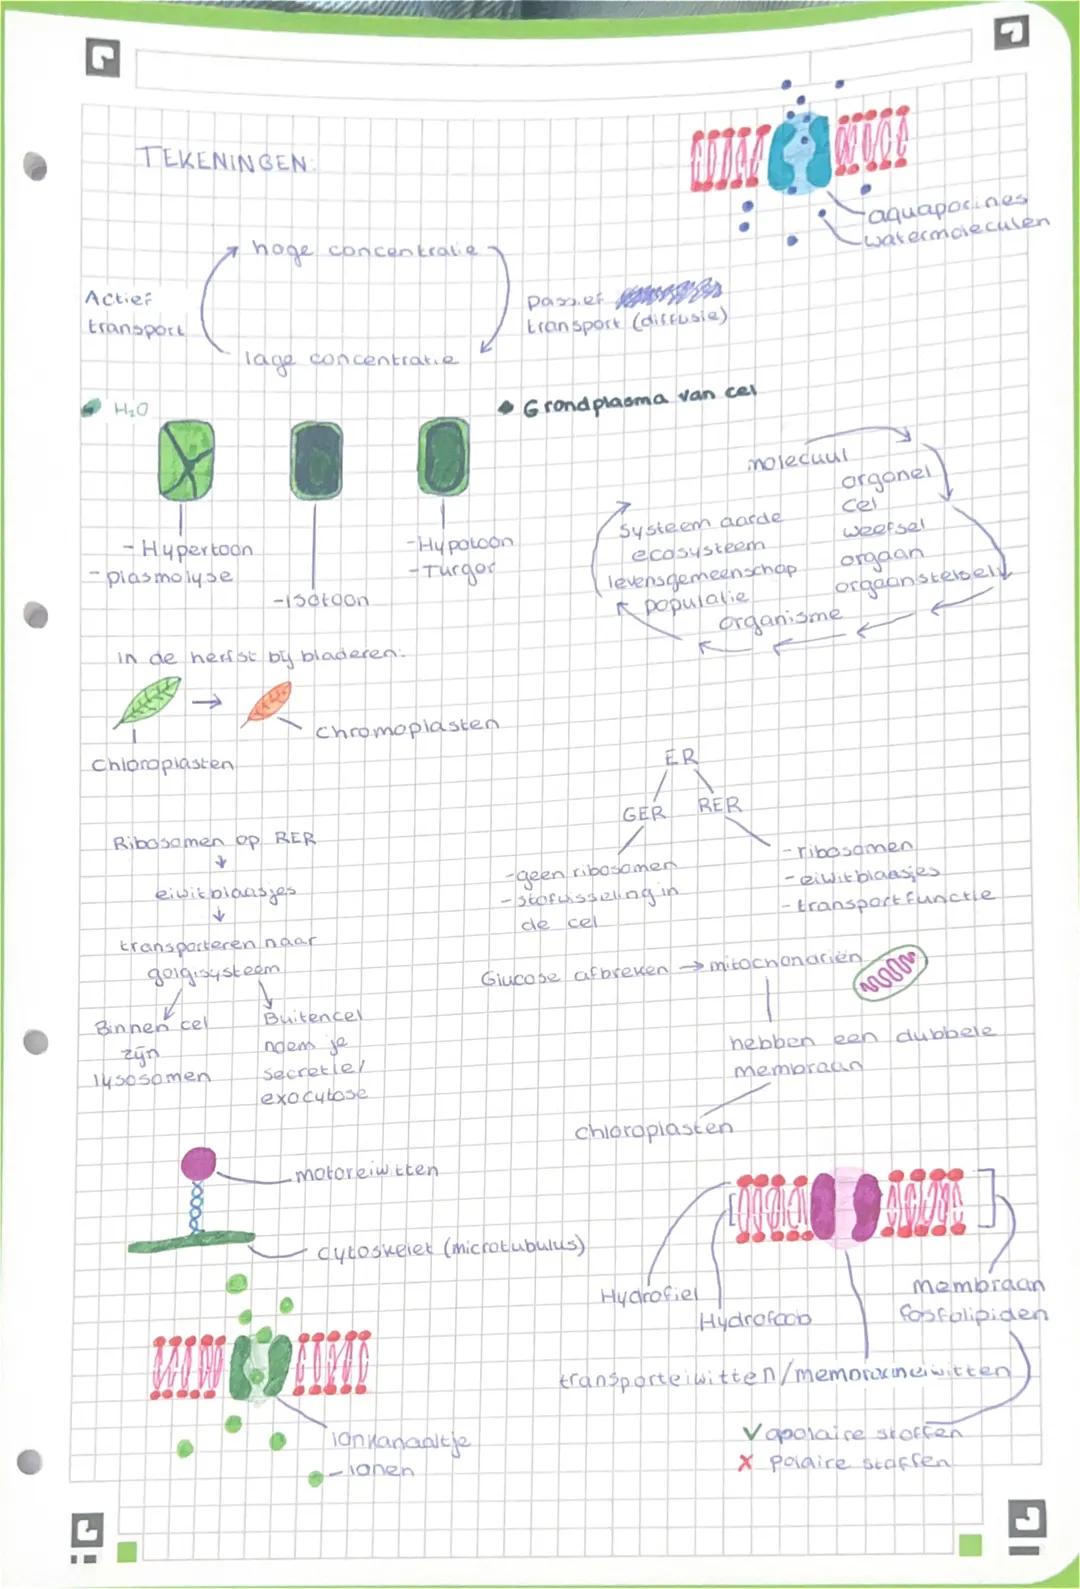 TEKENINGEN:
aquaporines
watermoleculen
hoge concentratie
Actief
transport
passief
transport (diffusie)
lage concentratie
H₂O
Grondplasma van cel
- Hypertoon
- plasmolyse
- isotoon
- Hypotoon
- Turgor
molecuul
organel
cel
weefsel
orgaan
orgaanstelsel
organisme
populatie
levensgemeenschap
ecosysteem
systeem aarde
in de herfst bij bladeren:
Chloroplasten
chromoplasten
ER
GER
RER
- geen ribosomen
- stofwisseling in
de cel
- ribosomen
- eiwitblaasjes
- transportfunctie
Ribosomen op RER
eiwitblaasjes
transporteren naar
golgisysteem
Binnen cel
zijn
lysosomen
Buitencel
noem je
secretie/
exocytose
Glucose afbreken → mitochondriën
hebben een dubbele
membraan
chloroplasten
motoreiwitten
cytoskelet (microtubulus)
Hydrofiel
Hydrofoob
membraan
fosfolipiden
transporteiwitten/membraaneiwitten
✓ apolaire stoffen
✗ polaire stoffen
ionkanaaltje
- ionen